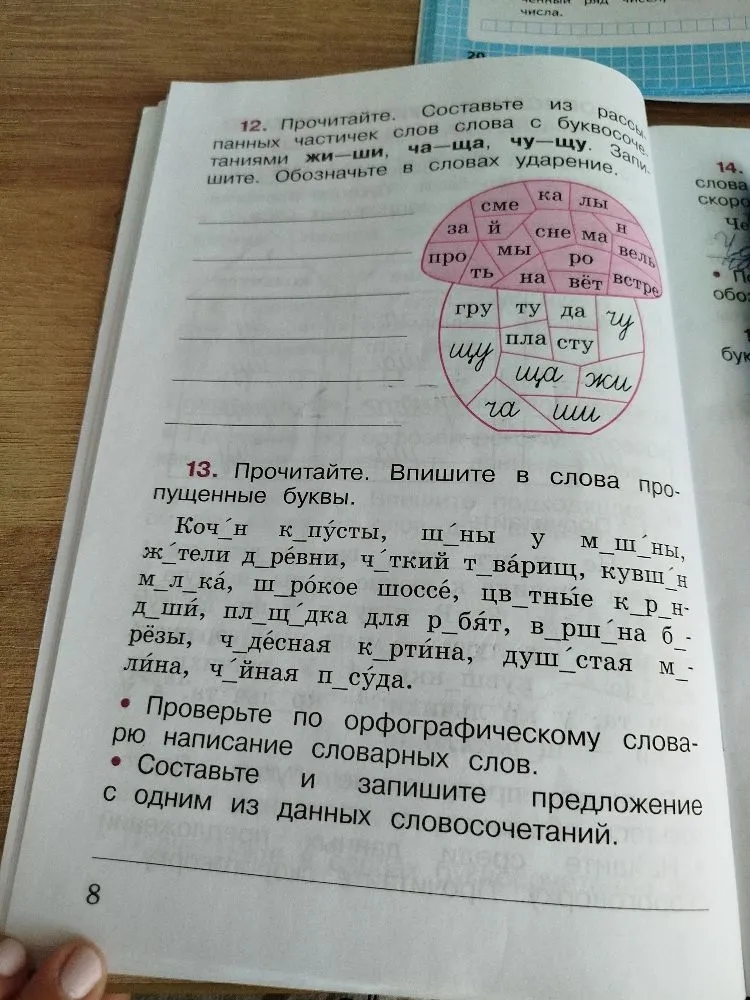 ченный ряд чисел,
числа.
20
12. Прочитайте. Составьте из рассы-
панных частичек слов слова с буквосоче-
таниями жи—ши, ча—ща, чу—щу. Запи-
шите. Обозначьте в словах ударение.
сме ка лы
за й сне ма н
про мы ро вель
ть на вёт встре
гру ту да чу
щу пла сту
ща жи
ча ши
13. Прочитайте. Впишите в слова про-
пущенные буквы.
Коч_́н к_пу́сты, ш_́ны у м_ш_́ны,
ж_́тели д_ре́вни, ч_́ткий т_ва́рищ, кувш_́н
м_л_ка́, ш_ро́кое шоссе́, цв_тны́е к_р_н-
д_ши́, пл_щ_́дка для р_бя́т, в_рш_́на б_-
рёзы, ч_де́сная к_рти́на, душ_́стая м_-
ли́на, ч_́йная п_су́да.
• Проверьте по орфографическому слова-
рю написание словарных слов.
• Составьте и запишите предложение
с одним из данных словосочетаний.
8
14.
слова
скоро
Че
• П
обоз
бук